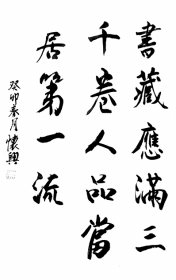 書藏應滿三
千卷人品當
居第一流
癸卯春月懷興